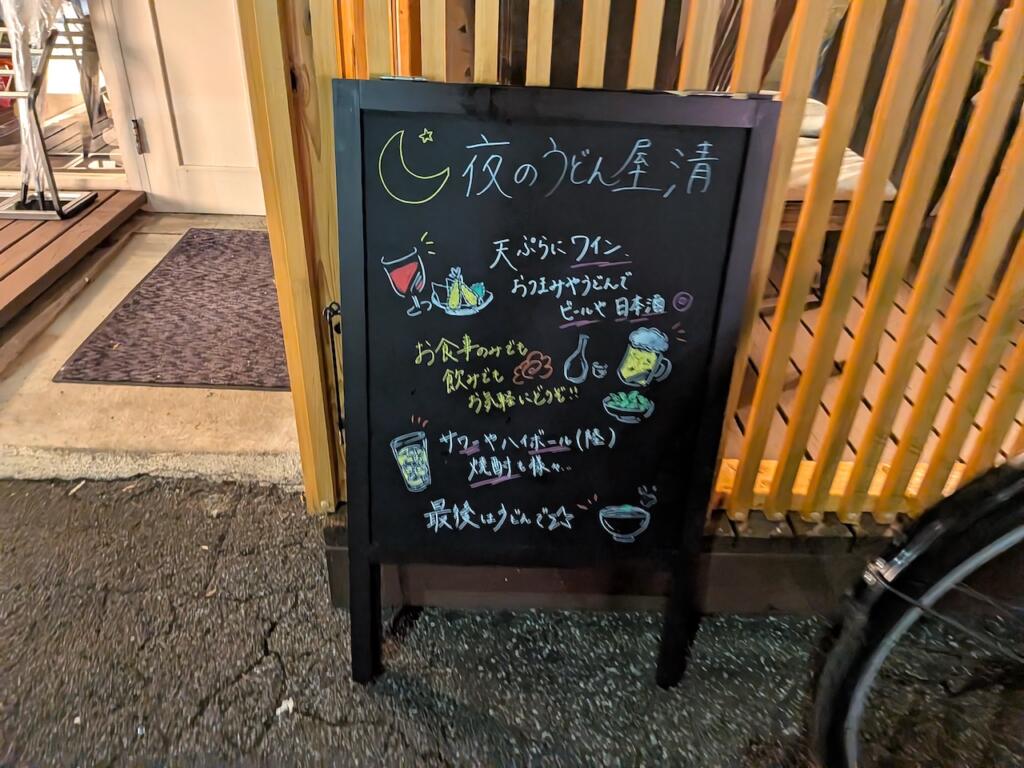 夜のうどん屋 清
天ぷらにワイン、
おつまみやうどんで
ビールや日本酒
お食事のみでも
飲みでも
お気軽にどうぞ!!
サワーやハイボール(陸)
焼酎も様々..
最後はうどんで☆